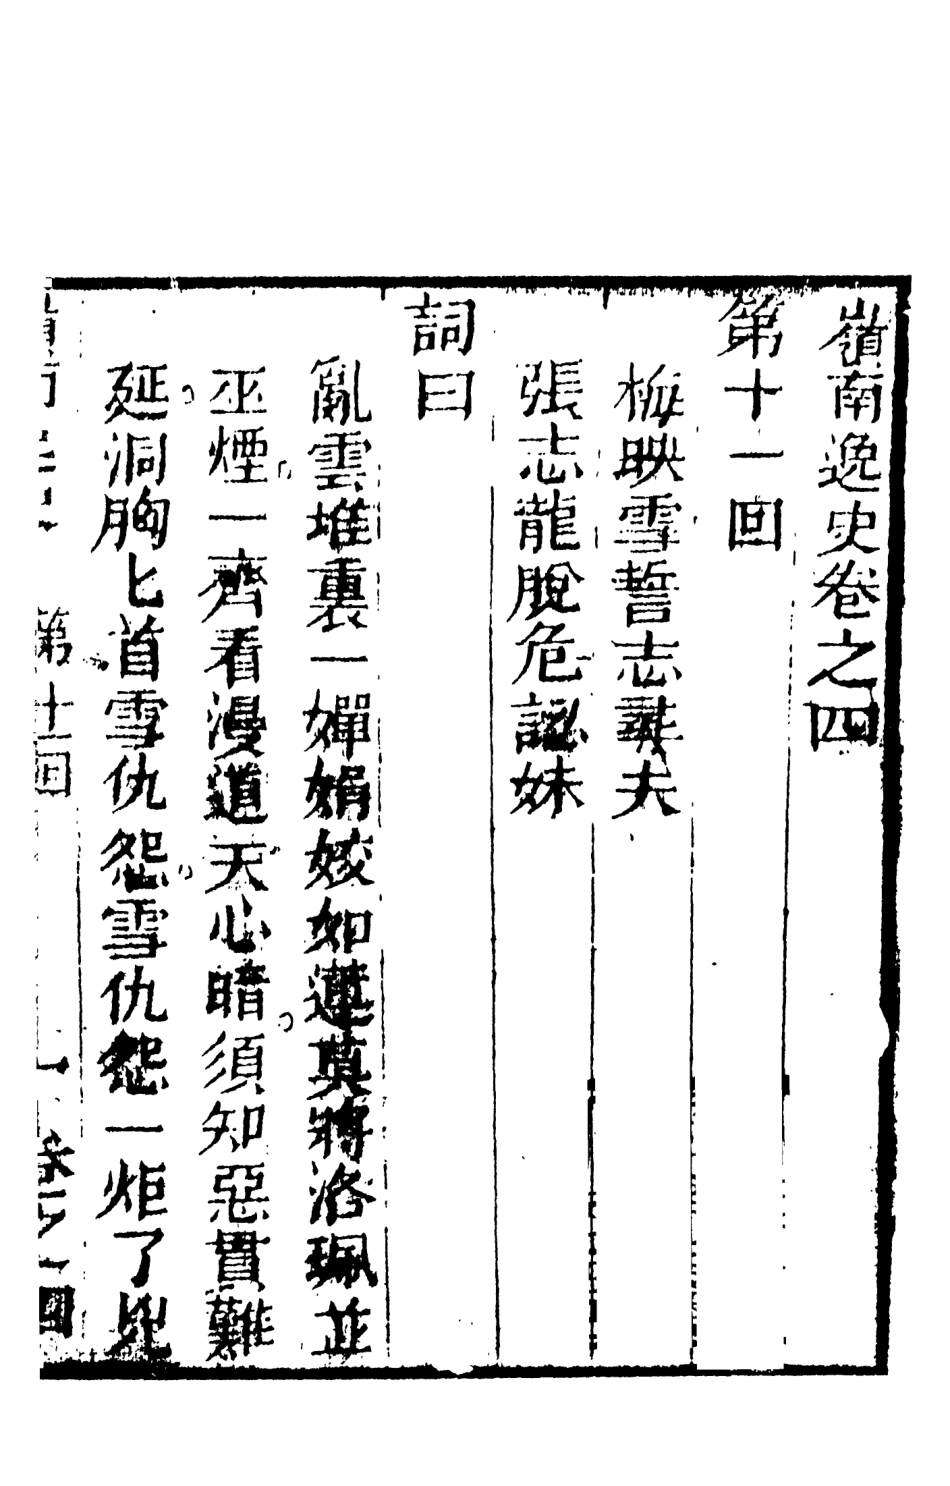 嶺南逸史卷之四
第十一回
梅映雪誓志尋夫
張志龍脫危認妹
詞曰
亂雲堆裏一嬋娟姣如蓮莫將洛珮並
巫煙一齊看漫道天心暗須知惡貫難
延洞胸匕首雪仇怨雪仇怨一炬了
第十一回